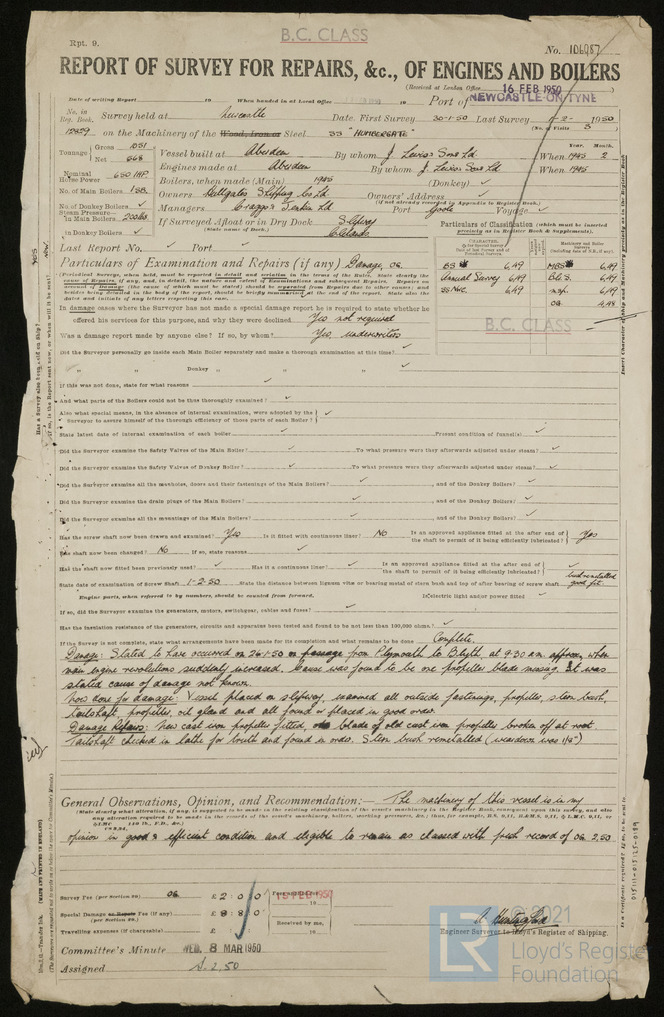 B.C. CLASS
Rpt. 9.
No. 106987
REPORT OF SURVEY FOR REPAIRS, &c., OF ENGINES AND BOILERS
(Received at London Office 16 FEB 1950)
Date of writing Report 19 When handed in at Local Office 19 Port of NEWCASTLE-ON-TYNE
No. in Reg. Book. Survey held at Newcastle Date. First Survey 30-1-50 Last Survey 1950
(No. of Visits 3)
on the Machinery of the Wood, Iron or Steel SS "HUMBERGATE"
Tonnage Gross 1051 Net 668
Vessel built at Aberdeen By whom J. Lewis & Sons Ld When 1945 2
Engines made at Aberdeen By whom J. Lewis & Sons Ld When 1945
Nominal Horse Power
Boilers, when made (Main) 1945 (Donkey) ✓
No. of Main Boilers 1SB
Owners Hullgates Shipping Co Ld Owners' Address ✓
(if not already recorded in Appendix to Register Book.)
No. of Donkey Boilers ✓
Managers Craggs & Jenkin Ld Port Goole Voyage ✓
Steam Pressure in Main Boilers 200 lbs
in Donkey Boilers ✓
If Surveyed Afloat or in Dry Dock Slipway
(State name of Dock.) Clelands
Particulars of Classification (which must be inserted precisely as in Register Book & Supplements).
Last Report No. ✓ Port ✓
Particulars of Examination and Repairs (if any) Damage, OG
BS 6,49 MBS 6,49
Annual Survey 6,49 BLS. 6,49
SS Nwc. 6,49 insp. 6,49
OG 4,48
B.C. CLASS
In damage cases where the Surveyor has not made a special damage report he is required to state whether he
offered his services for this purpose, and why they were declined Yes not required
Was a damage report made by anyone else? If so, by whom? Yes, underwriters
Did the Surveyor personally go inside each Main Boiler separately and make a thorough examination at this time? ✓
" " Donkey " " " ✓
If this was not done, state for what reasons ✓
And what parts of the Boilers could not be thus thoroughly examined? ✓
Also what special means, in the absence of internal examination, were adopted by the
Surveyor to assure himself of the thorough efficiency of those parts of each Boiler? ✓
State latest date of internal examination of each boiler ✓ Present condition of funnel(s) ✓
Did the Surveyor examine the Safety Valves of the Main Boiler? ✓ To what pressure were they afterwards adjusted under steam? ✓
Did the Surveyor examine the Safety Valves of Donkey Boiler? ✓ To what pressure were they afterwards adjusted under steam? ✓
Did the Surveyor examine all the manholes, doors and their fastenings of the Main Boilers? ✓, and of the Donkey Boilers? ✓
Did the Surveyor examine the drain plugs of the Main Boilers? ✓, and of the Donkey Boilers? ✓
Did the Surveyor examine all the mountings of the Main Boilers? ✓, and of the Donkey Boilers? ✓
Has the screw shaft now been drawn and examined? Yes Is it fitted with continuous liner? No Is an approved appliance fitted at the after end of
the shaft to permit of it being efficiently lubricated? Yes
Has shaft now been changed? No If so, state reasons ✓
Has the shaft now fitted been previously used? ✓ Has it a continuous liner? ✓ Is an approved appliance fitted at the after end of
the shaft to permit of it being efficiently lubricated? ✓
State date of examination of Screw Shaft 1-2-50 State the distance between lignum vitæ or bearing metal of stern bush and top of after bearing of screw shaft bush remetalled good fit.
Engine parts, when referred to by numbers, should be counted from forward. Is electric light and/or power fitted ✓
If so, did the Surveyor examine the generators, motors, switchgear, cables and fuses? ✓
Has the insulation resistance of the generators, circuits and apparatus been tested and found to be not less than 100,000 ohms? ✓
If the Survey is not complete, state what arrangements have been made for its completion and what remains to be done Complete.
Damage: Stated to have occurred on 26-1-50 on passage from Plymouth to Blyth, at 9-30 a.m. approx, when
main engine revolutions suddenly increased. Cause was found to be one propeller blade missing. It was
stated cause of damage not known.
Now done for damage: Vessel placed on slipway, examined all outside fastenings, propeller, stern bush,
tailshaft properties, oil gland and all found or placed in good order.
Damage Repairs: New cast iron propeller fitted, one blade of old cast iron propeller broken off at root.
Tailshaft checked in lathe for truth and found in order. Stern bush remetalled
General Observations, Opinion, and Recommendation:— The machinery of this vessel is in my
opinion in good & efficient condition and eligible to remain as classed with fresh record of OG 2,50
Survey Fee (per Section 29) OG £ 2 : 0 : 0
Special Damage or Repairs Fee (if any) £ 8 : 8 : 0
(per Section 29.)
Travelling expenses (if chargeable) £ : :
Received by me,
15 FEB 1950
Engineer Surveyor to Lloyd's Register of Shipping.
Committee's Minute WED. 8 MAR 1950
Assigned S. 2,50
© 2021
LR
Lloyd's Register
Foundation